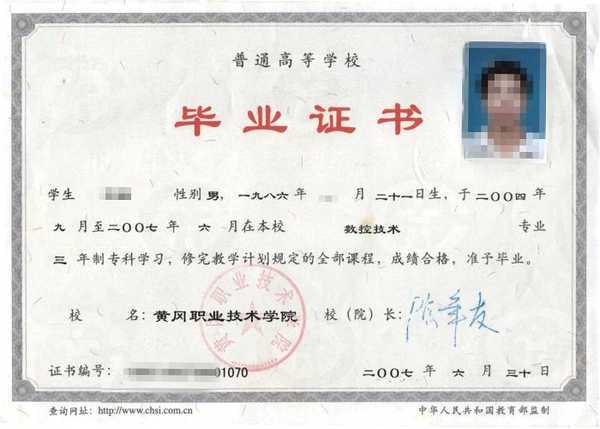 普通高等学校
毕业证书
学生 性别 男，一九八六年 月二十一日生，于二〇〇四年
九月至二〇〇七年六月在本校 数控技术 专业
三年制专科学习，修完教学计划规定的全部课程，成绩合格，准予毕业。
校 名：黄冈职业技术学院 校（院）长：
黄冈职业技术学院
证书编号： 01070 二〇〇七年六月三十日
查询网址：http://www.chsi.com.cn 中华人民共和国教育部监制